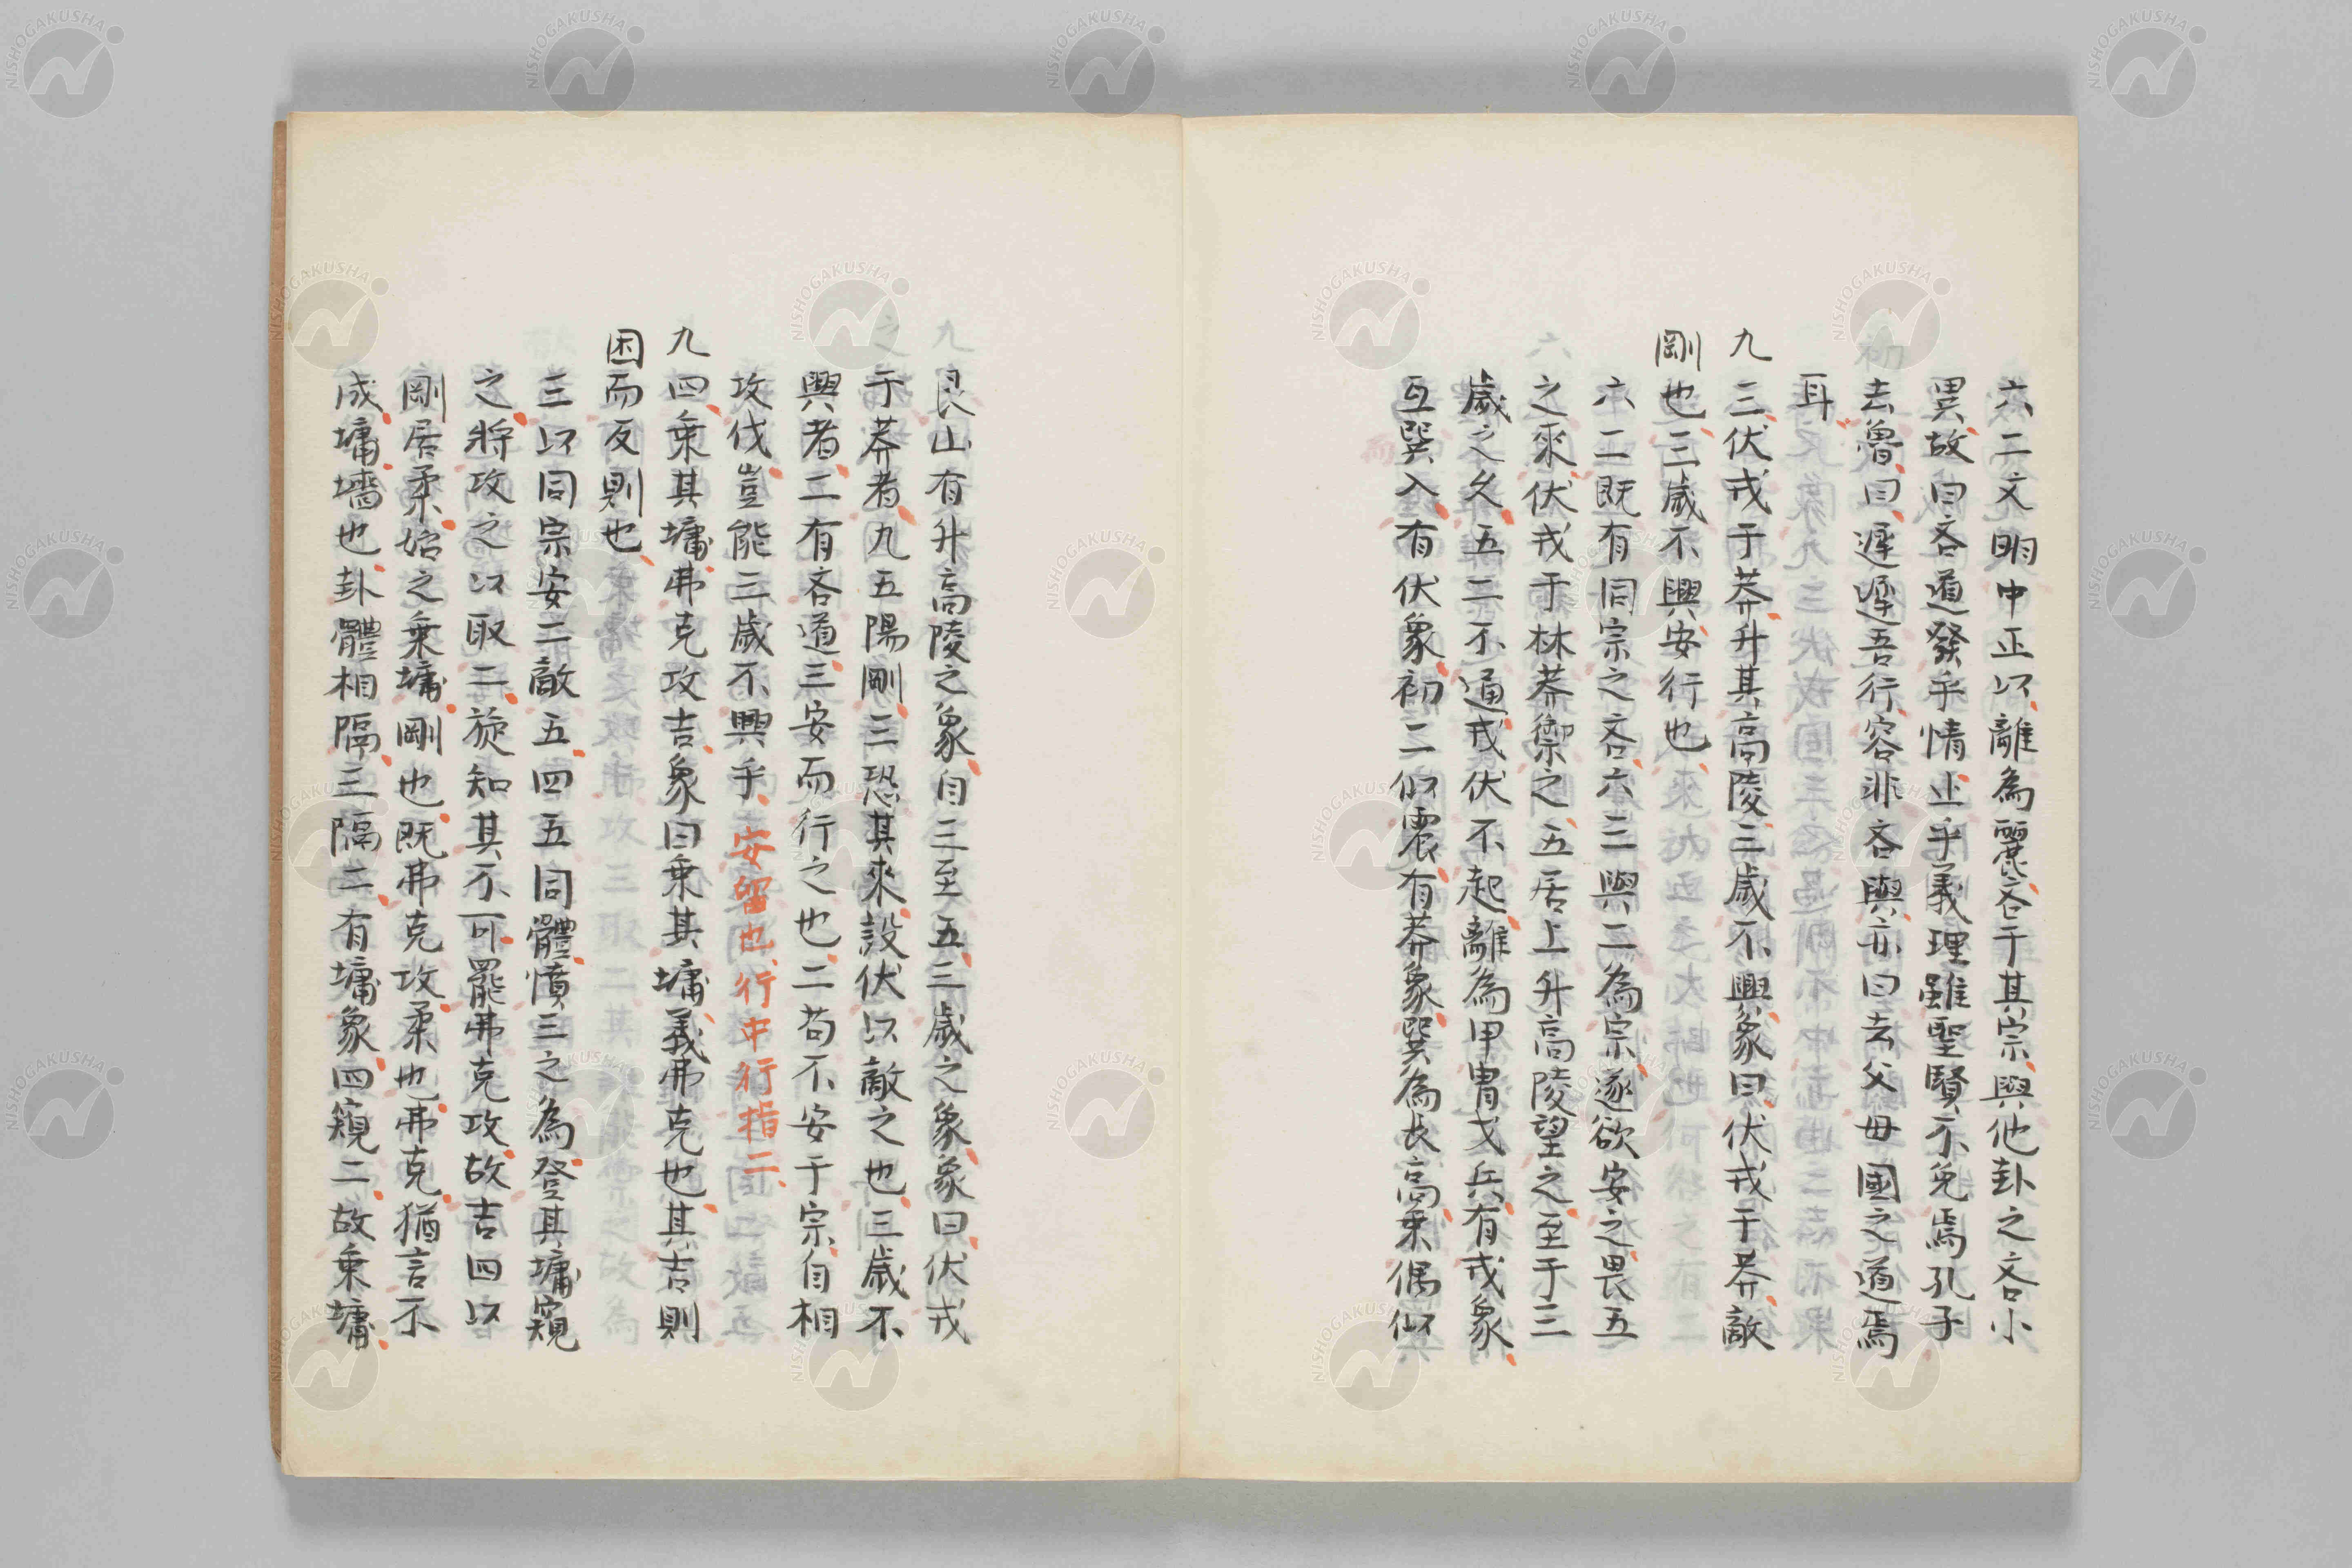 六二文明中正以離為麗吝于其宗與他卦之吝小
異故曰吝道發乎情止乎義理雖聖賢不免焉孔子
去魯曰遲遲吾行容非吝與亦曰去父母國之道焉
耳
九三伏戎于莽升其高陵三歲不興象曰伏戎于莽敵
剛也三歲不興安行也
六二既有同宗之吝六三與二為宗遂欲安之畏五
之來伏戎于林莽禦之五居上升高陵望之至于三
歲之久五二不通戎伏不起離為甲冑戈兵有戎象
互巽入有伏象初二似震有莽象巽為長高乘偶似
艮山有升高陵之象自三至五三歲之象象曰伏戎
于莽者九五陽剛三恐其來設伏以敵之也三歲不
興者二有吝道三安而行之也二苟不安于宗自相
攻伐豈能三歲不興乎安留也行中行指二
九四乘其墉弗克攻吉象曰乘其墉義弗克也其吉則
困而反則也
三以同宗安二敵五四五同體憤三之為登其墉窺
之將攻之以取二旋知其不可罷弗克攻故吉四以
剛居柔始之乘墉剛也既弗克攻柔也弗克猶言不
成墉墻也卦體相隔三隔二有墉象四窺二故乘墉
NISHOGAKUSHA